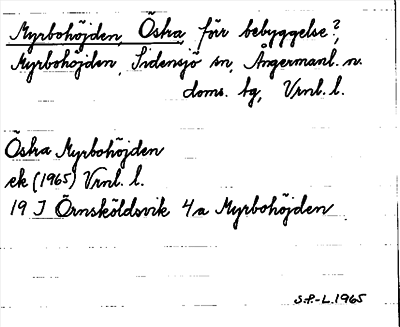 Myrbohöjden, Östra, förr bebyggelse?,
Myrbohöjden, Sidensjö sn, Ångermanl. n.
doms. tg, Vrnl. l.
Östra Myrbohöjden
ek (1965) Vrnl. l.
19 J Örnsköldsvik 4a Myrbohöjden
S.P.-L. 1965